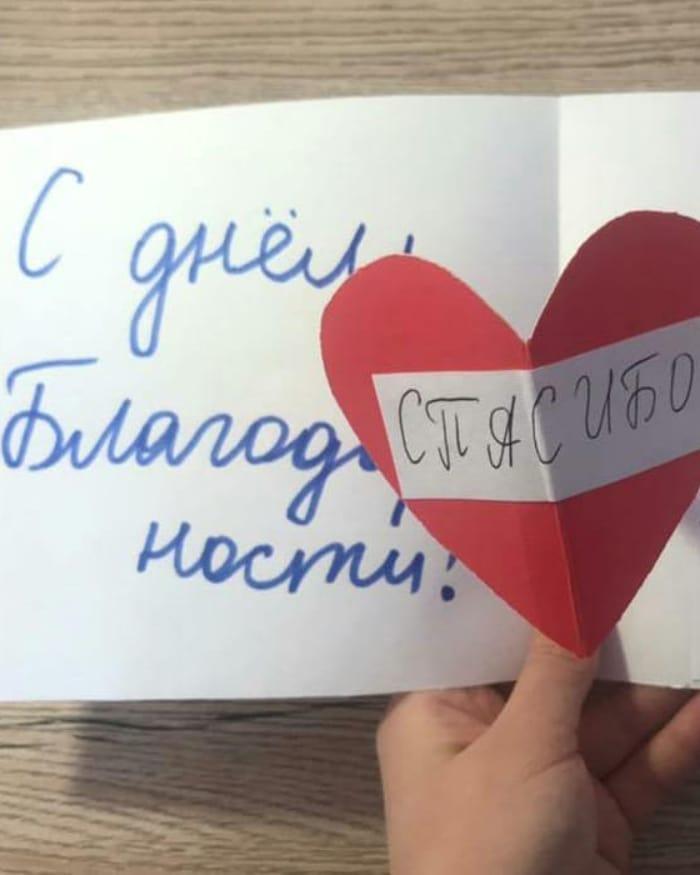 С днём
Благодар
ности!
СПАСИБО